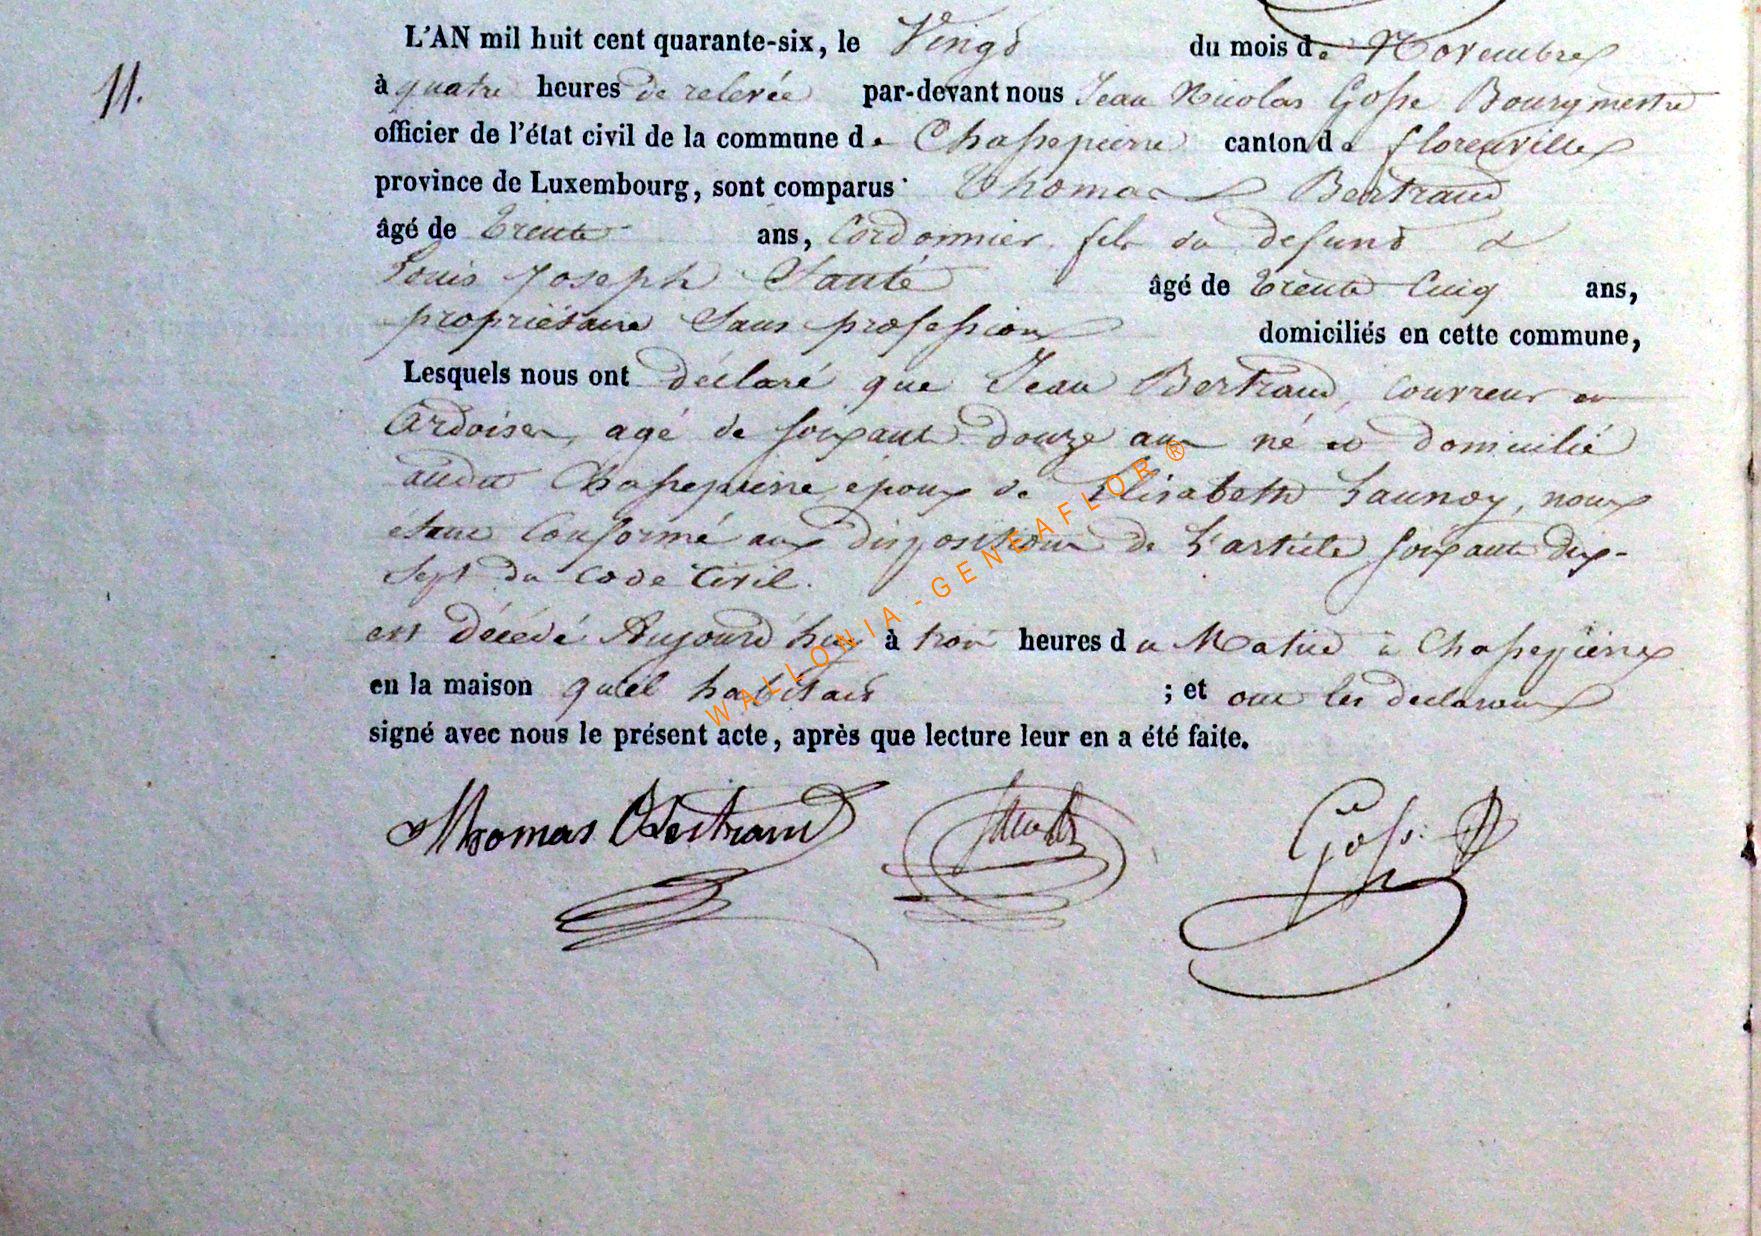 11.
L'AN mil huit cent quarante-six, le Vingt du mois de Novembre
à quatre heures de relevée par-devant nous Jean Nicolas Gosse Bourgmestre
officier de l'état civil de la commune de Chassepierre canton de florenville
province de Luxembourg, sont comparus Thomas Bertrand
âgé de trente ans, Cordonnier fils du defunt &
Louis Joseph Santé âgé de trente Cinq ans,
propriétaire Sans profession domiciliés en cette commune,
Lesquels nous ont déclaré que Jean Bertrand, Couvreur en
Ardoises, agé de soixante douze ans né et domicilié
audit Chassepierre, epoux de Elisabeth Launoy, nous
étant Conformé aux dispositions de L'article soixante dix-
sept du Code Civil.
est décédé Aujourd'huy à trois heures du Matin à Chassepierre
en la maison qu'il habitait ; et ont les declarans
signé avec nous le présent acte, après que lecture leur en a été faite.
Thomas Bertrand Gosse
WALLONIA-GENEAFLOR®